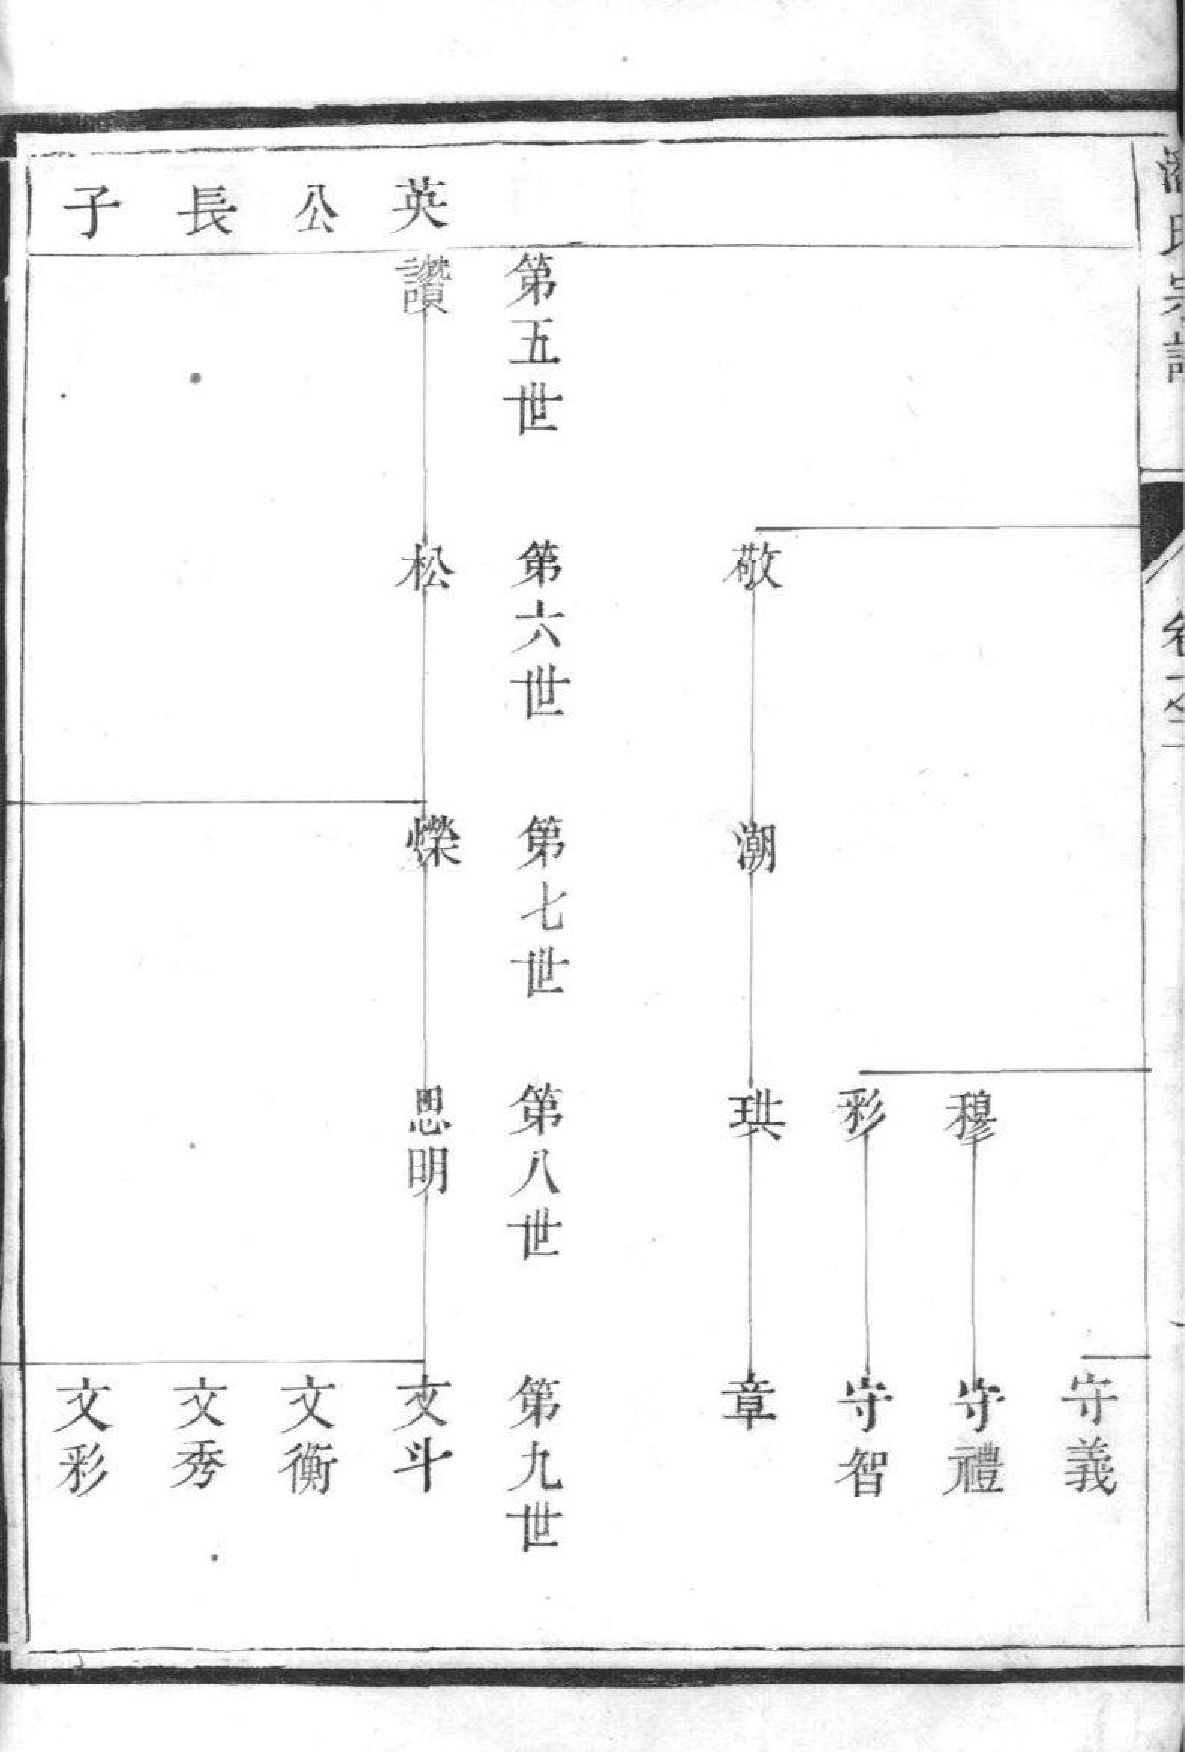 守義
穆
守禮
彩
守智
敬
潮
珙
章
第五世
第六世
第七世
第八世
第九世
英公長子
讚
松
爃
思明
文斗
文衡
文秀
文彩